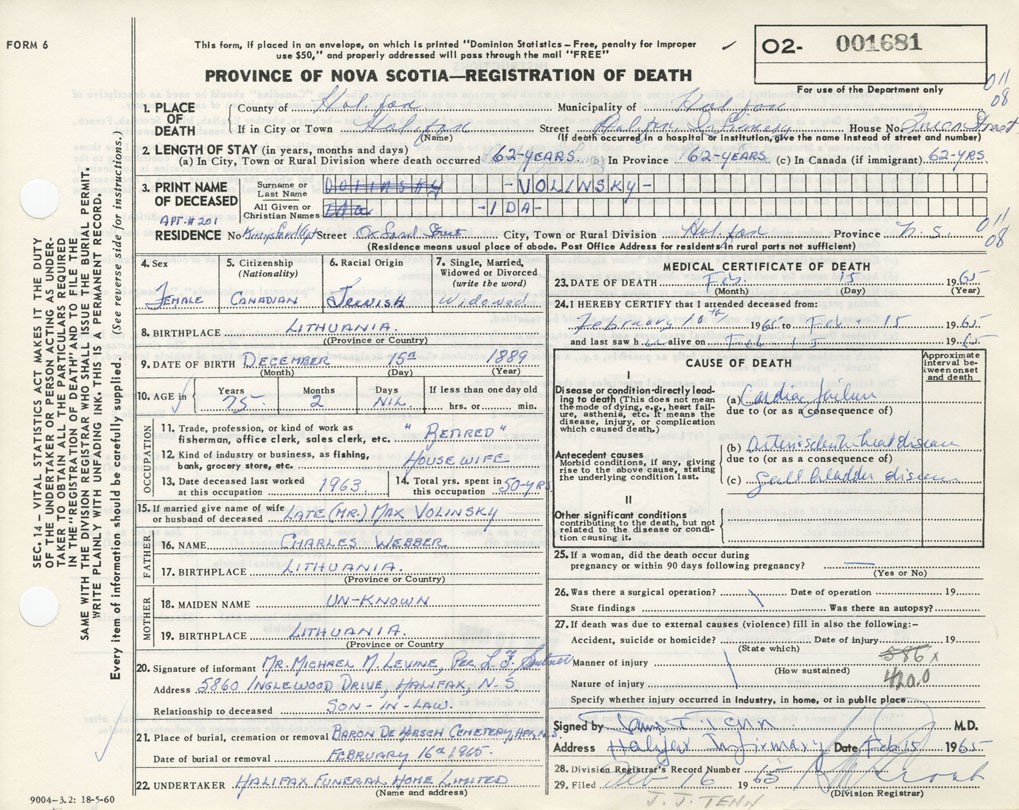 FORM 6
This form, if placed in an envelope, on which is printed "Dominion Statistics – Free, penalty for improper
use $50," and properly addressed will pass through the mail "FREE"
O2- 001681
For use of the Department only
PROVINCE OF NOVA SCOTIA—REGISTRATION OF DEATH
011
08
1. PLACE OF DEATH
County of Halifax Municipality of Halifax
If in City or Town Halifax (Name) Street Halifax Infirmary House No. Queen Street
(If death occurred in a hospital or institution, give the name instead of street and number)
2. LENGTH OF STAY (in years, months and days)
(a) In City, Town or Rural Division where death occurred 62-YEARS. (b) In Province 62-YEARS (c) In Canada (if immigrant) 62-YRS.
3. PRINT NAME OF DECEASED
Surname or Last Name -VOLINSKY-
All Given or Christian Names -IDA-
APT. # 201
RESIDENCE No. Street City, Town or Rural Division Halifax Province N.S
011
08
(Residence means usual place of abode. Post Office Address for residents in rural parts not sufficient)
4. Sex
FEMALE
5. Citizenship (Nationality)
CANADIAN
6. Racial Origin
JEWISH
7. Single, Married, Widowed or Divorced (write the word)
Widowed
8. BIRTHPLACE LITHUANIA.
(Province or Country)
9. DATE OF BIRTH DECEMBER 15th 1889
(Month) (Day) (Year)
10. AGE in
Years Months Days If less than one day old
75- 2 NIL hrs. or min.
OCCUPATION
11. Trade, profession, or kind of work as
fisherman, office clerk, sales clerk, etc. "RETIRED"
12. Kind of industry or business, as fishing,
bank, grocery store, etc. HOUSEWIFE
13. Date deceased last worked
at this occupation 1963
14. Total yrs. spent in
this occupation 50-YRS
15. If married give name of wife
or husband of deceased LATE (MR.) MAX VOLINSKY
FATHER
16. NAME CHARLES WEBBER
17. BIRTHPLACE LITHUANIA.
(Province or Country)
MOTHER
18. MAIDEN NAME UN-KNOWN
19. BIRTHPLACE LITHUANIA.
(Province or Country
20. Signature of informant MR. MICHAEL M. LEVINE PER L.F.
Address 5860 INGLEWOOD DRIVE, HALIFAX, N-S
Relationship to deceased SON-IN-LAW.
21. Place of burial, cremation or removal BARON DE HIRSCH CEMETERY, N.S.
Date of burial or removal FEBRUARY 16th 1965.
22. UNDERTAKER HALIFAX FUNERAL HOME LIMITED
(Name and address)
MEDICAL CERTIFICATE OF DEATH
23. DATE OF DEATH Feb 15 1965
(Month) (Day) (Year)
24. I HEREBY CERTIFY that I attended deceased from:
February 10th 1965 to Feb 15 1965
and last saw h er alive on Feb 15 1965
CAUSE OF DEATH
Approximate interval between onset and death
I
Disease or condition directly leading to death (This does not mean the mode of dying, e.g., heart failure, asthenia, etc. It means the disease, injury, or complication which caused death.)
(a) Cardiac failure
due to (or as a consequence of)
Antecedent causes
Morbid conditions, if any, giving rise to the above cause, stating the underlying condition last.
(b) Arteriosclerotic heart disease
due to (or as a consequence of)
(c) Gall bladder disease
II
Other significant conditions
contributing to the death, but not related to the disease or condition causing it.
25. If a woman, did the death occur during
pregnancy or within 90 days following pregnancy?
(Yes or No)
26. Was there a surgical operation? Date of operation 19
State findings Was there an autopsy?
27. If death was due to external causes (violence) fill in also the following:–
Accident, suicide or homicide? Date of injury 19
(State which)
586 x
Manner of injury
(How sustained)
420.0
Nature of injury
Specify whether injury occurred in Industry, in home, or in public place
Signed by Tenn M.D.
Address Halifax Infirmary Date Feb 15 1965
28. Division Registrar's Record Number
29. Filed Feb 16 1965
(Division Registrar)
J. J. TENN
9004–3.2: 18-5-60
SEC. 14 – VITAL STATISTICS ACT MAKES IT THE DUTY
OF THE UNDERTAKER OR PERSON ACTING AS UNDER-
TAKER TO OBTAIN ALL THE PARTICULARS REQUIRED
IN THE "REGISTRATION OF DEATH" AND TO FILE THE
SAME WITH THE DIVISION REGISTRAR WHO SHALL ISSUE THE BURIAL PERMIT.
WRITE PLAINLY WITH UNFADING INK. THIS IS A PERMANENT RECORD.
Every item of information should be carefully supplied. (See reverse side for instructions.)